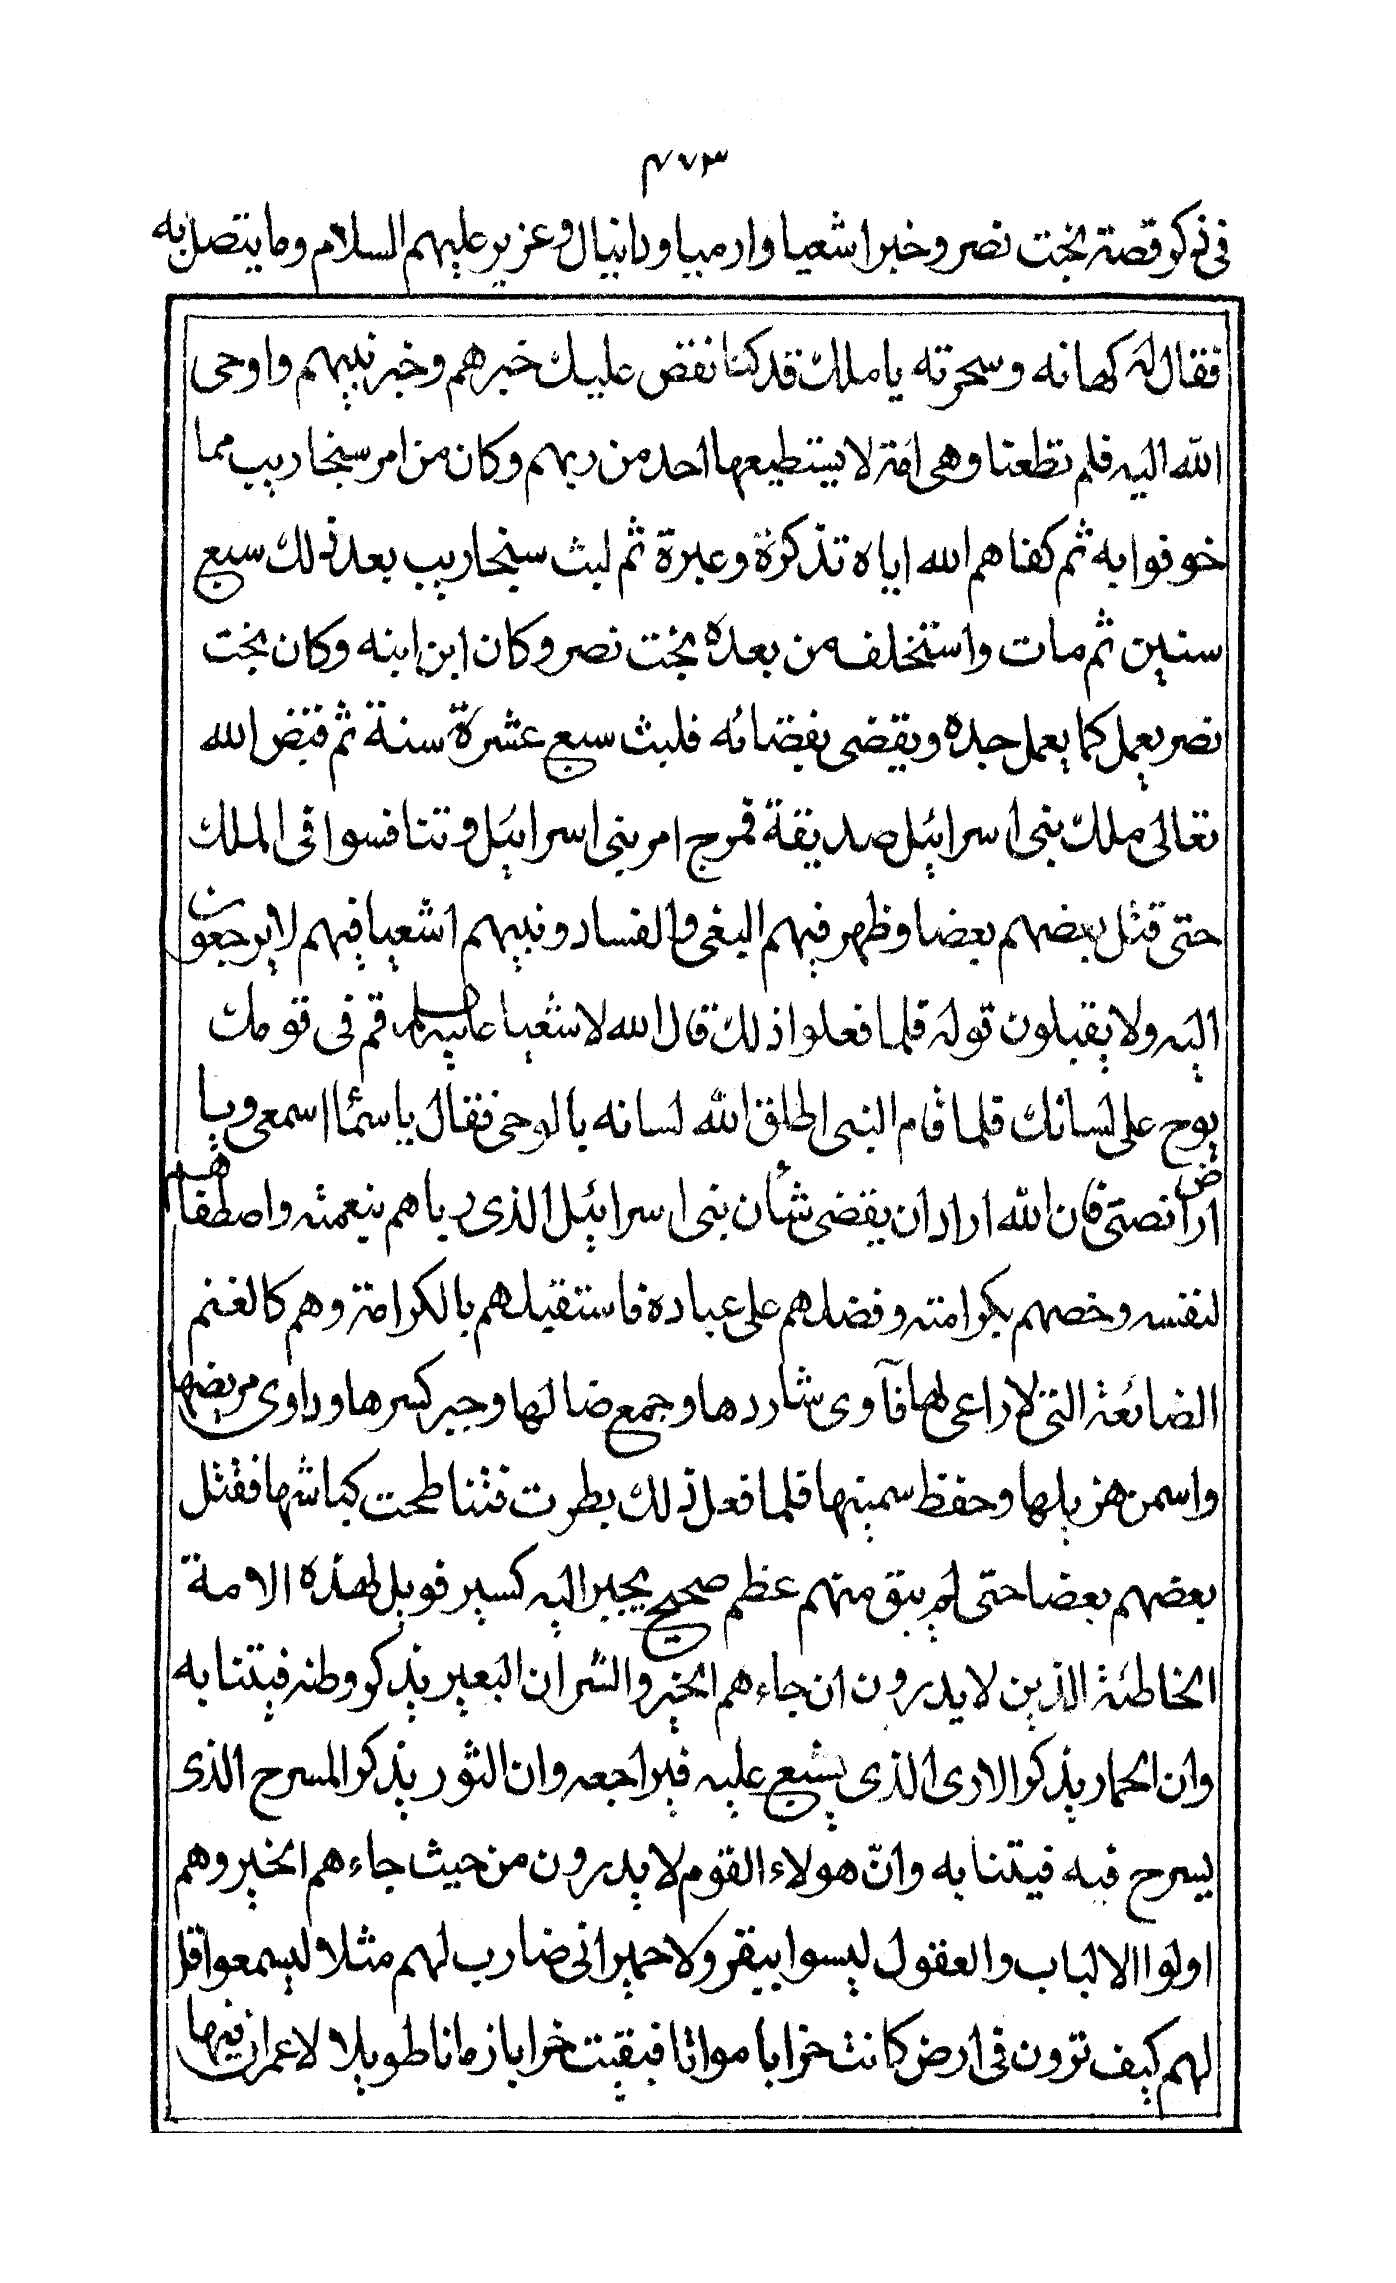 ٤٧٣
فى ذكر قصة بخت نصر وخبر اشعيا وارميا ودانيال وعزير عليهم السلام وما يتصل به
فقال له كهانه وسحرته يا ملك قد كنا نقص عليك خبرهم وخبر نبيهم واوحى
الله اليه فلم تطعنا وهى امة لا يستطيعها احد من ربهم وكان من امر سنجاريب مما
خوفوا به ثم كفاهم الله اياه تذكرة وعبرة ثم لبث سنجاريب بعد ذلك سبع
سنين ثم مات واستخلف من بعده بخت نصر وكان ابن ابنه وكان بخت
نصر يعمل كما يعمل جده ويقضى بقضائه فلبث سبع عشرة سنة ثم قبض الله
تعالى ملك بنى اسرائيل صديقة فمرج امر بنى اسرائيل وتنافسوا فى الملك
حتى قتل بعضهم بعضا وظهر فيهم البغى والفساد ونبيهم اشعيا فيهم لا يرجعون
اليه ولا يقبلون قوله فلما فعلوا ذلك قال الله لاشعيا عليه السلم قم فى قومك
يوح على لسانك فلما قام النبى اطلق الله لسانه بالوحى فقال يا سماا اسمعى ويا
ارض انصتى فان الله اراد ان يقضى شأن بنى اسرائيل الذى رباهم بنعمته واصطفاهم
لنفسه وخصهم بكرامته وفضلهم على عباده فاستقبلهم بالكرامة وهم كالغنم
الضائعة التى لا راعى لها فآوى شاردها وجمع ضالها وجبر كسرها وداوى مريضها
واسمن هزيلها وحفظ سمينها فلما فعل ذلك بطرت فتناطحت كباشها فقتل
بعضهم بعضا حتى لم يبق منهم عظم صحيح يجبر اليه كسير فويل لهذه الامة
الخاطئة الذين لا يدرون ان جاءهم الخير والشر ان البعير يذكر وطنه فيتنابه
وان الحمار يذكر الارى الذى يشبع عليه فيراجعه وان الثور يذكر المسرح الذى
يسرح فيه فيتنابه وانّ هولاء القوم لا يدرون من حيث جاءهم الخير وهم
اولوا الالباب والعقول ليسوا ببقر ولا حمير انى ضارب لهم مثلا ليسمعوا قل
لهم كيف ترون فى ارض كانت خرابا مواتا فبقيت خرابا زمانا طويلا لا عمران فيها